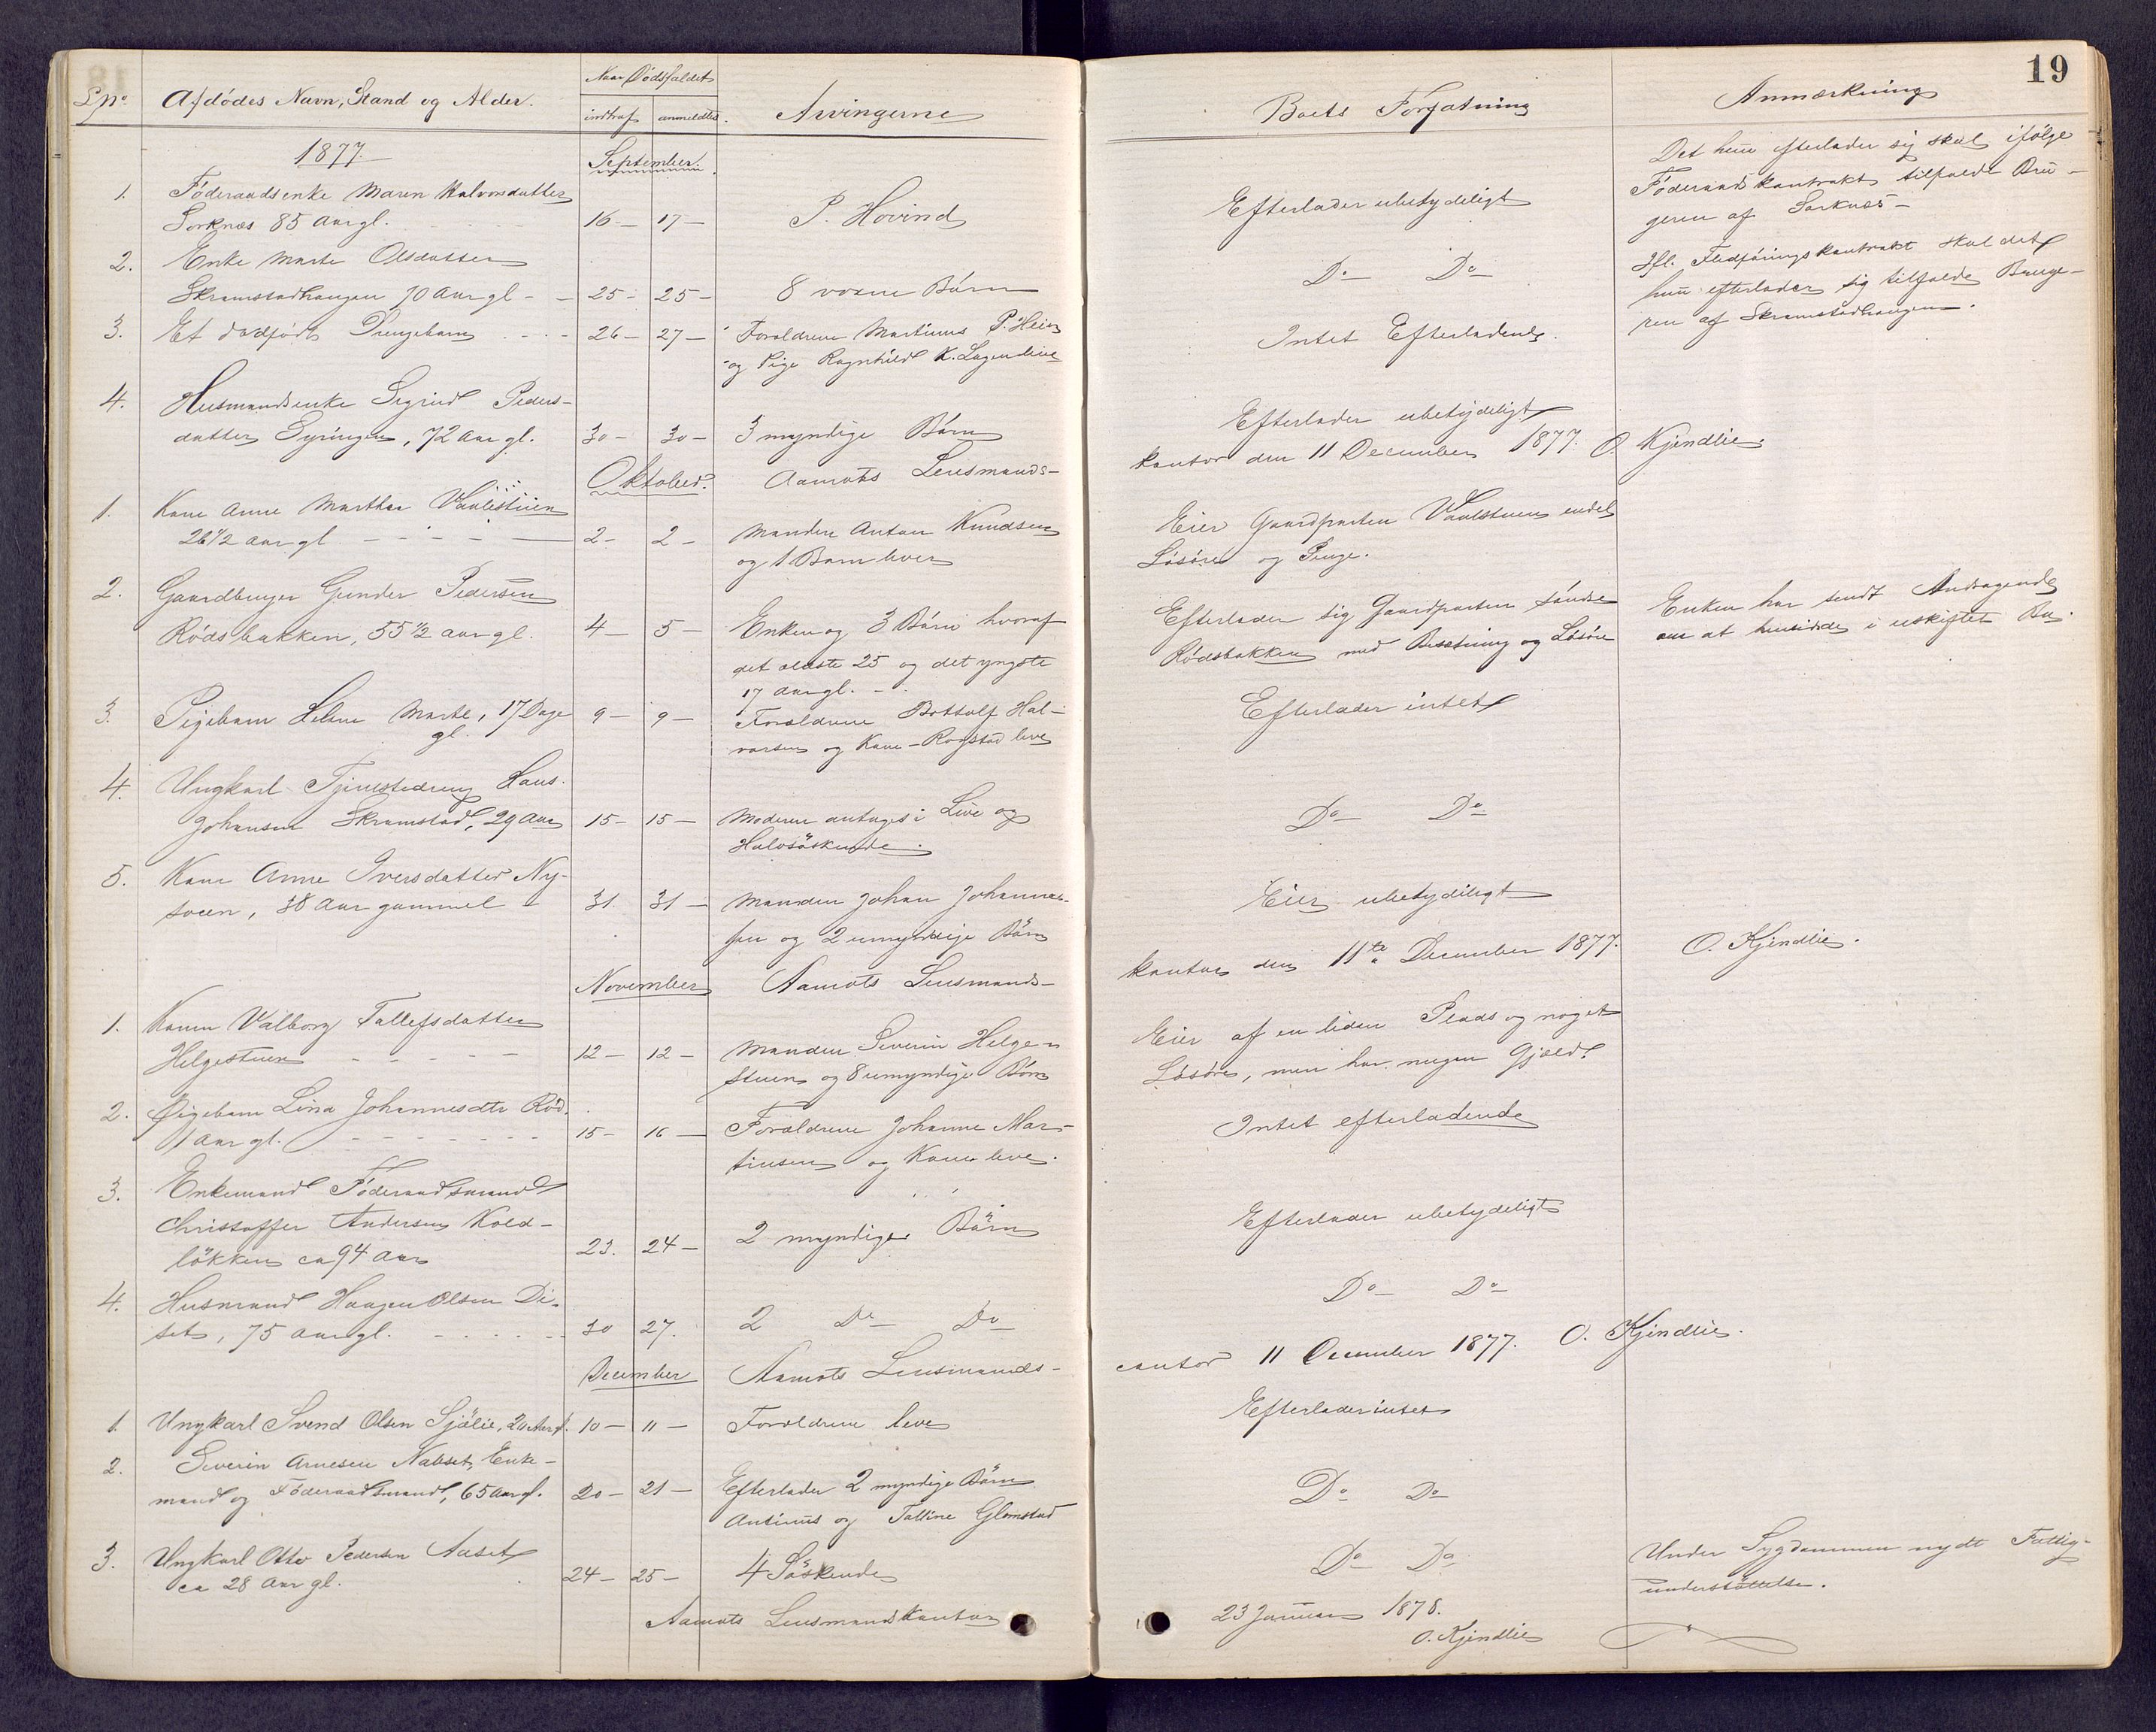 19
Lno Afdödes Navn, Stand og Alder. Naar Dødsfaldet Arvingerne Boets Forfatning Anmærkning
indtraf anmeldtes.
1877. September.
1. Föderaadsenke Maren Halvorsdatter Det hun efterlader sig skal ifölge
Sorknæs 85 Aar gl. 16 – 17 – P. Hovind Efterlader ubetydeligt Föderaadskontrakt tilfalde Bru-
geren af Sorknæs –
2. Enke Marte Olsdatter Ifl. Fledföringskontrakt skal det
Skramstadhaugen 70 Aar gl – 25 – 25 – 8 voxne Börn Do Do hun efterlader sig tilfalde Bruge-
ren af Skramstadhaugen.
3. Et dødfödt Drengebarn 26 – 27 – Forældrene Martinus P. Heien Intet Efterladende.
og Pige Ragnhild K. Lagen leve
4. Husmandsenke Sigrid Peders-
datter Syringen, 72 Aar gl. 30 – 30 – 3 myndige Börn Efterlader ubetydeligt
Oktober. Aamots Lensmands-
kontor den 11 December 1877. O. Kjendlie.
1. Kone Anne Marthea Vaulestuen
26 1/2 aar gl. 2 – 2 – Manden Anton Knudsen Eier Gaardparten Vaulstuen endel
og 1 Barn lever Lösöre og Penge.
2. Gaardbruger Gunder Pedersen
Rödsbakken, 55 1/2 aar gl. 4 – 5 – Enken og 3 Börn hvoraf Efterlader sig Gaardparten söndre Enken har sendt Andragende
det ældste 25 og det yngste Rödsbakken med Besetning og Lösöre om at hensidde i uskiftet Bo.
17 aar gl.
3. Pigebarn Helene Marte, 17 Dage 9 – 9 – Forældrene Bottolf Hal- Efterlader intet
gl. vorsen og Kone – Rogstad leve
4. Ungkarl Tjenestedreng Hans
Johansen Skramstad, 29 Aar 15 – 15 – Moderen antages i Live og Do Do
Halvsöskende.
5. Kone Anne Iversdatter Ny-
soen, 38 Aar gammel 31. 31 – Manden Johan Johannes- Eier ubetydeligt
sen og 2 umyndige Börn
November Aamots Lensmands-
kontor den 11te December 1877. O. Kjendlie.
1. Konen Valborg Tallefsdatter
Helgestuen 12 – 12 – Manden Severin Helge- Eier af en liden Plads og noget
stuen og 8 umyndige Börn Lösöre, men har megen Gjæld.
2. Pigebarn Lina Johannesdtr Röd
1 aar gl. 15 – 16 – Forældrene Johanne Mar- Intet efterladende
tinsen og Kone leve.
3. Enkemand Föderaadsmand
Christoffer Andersen Kold-
lökken ca 94 aar 23. 24 – 2 myndige Börn Efterlader ubetydeligt
4. Husmand Haagen Olsen Di-
set, 75 aar gl. 30 27. 2 Do Do Do Do
December Aamots Lensmands-
contor 11 December 1877. O. Kjendlie.
1. Ungkarl Svend Olsen Sjölie, 20 Aar gl. 10 – 11 – Forældrene leve Efterlader intet
2. Severin Arnesen Nabset, Enke-
mand og Föderaadsmand, 65 Aar gl. 20 – 21 – Efterlader 2 myndige Börn Do Do
Antinus og Talline Glomstad
3. Ungkarl Otto Pedersen Aaset
ca 28 Aar gl. 24 – 25 – 4 Söskende Do Do Under Sygdommen nydt Fattig-
understöttelse.
Aamots Lensmandskontor 23 Januar 1878.
O. Kjendlie